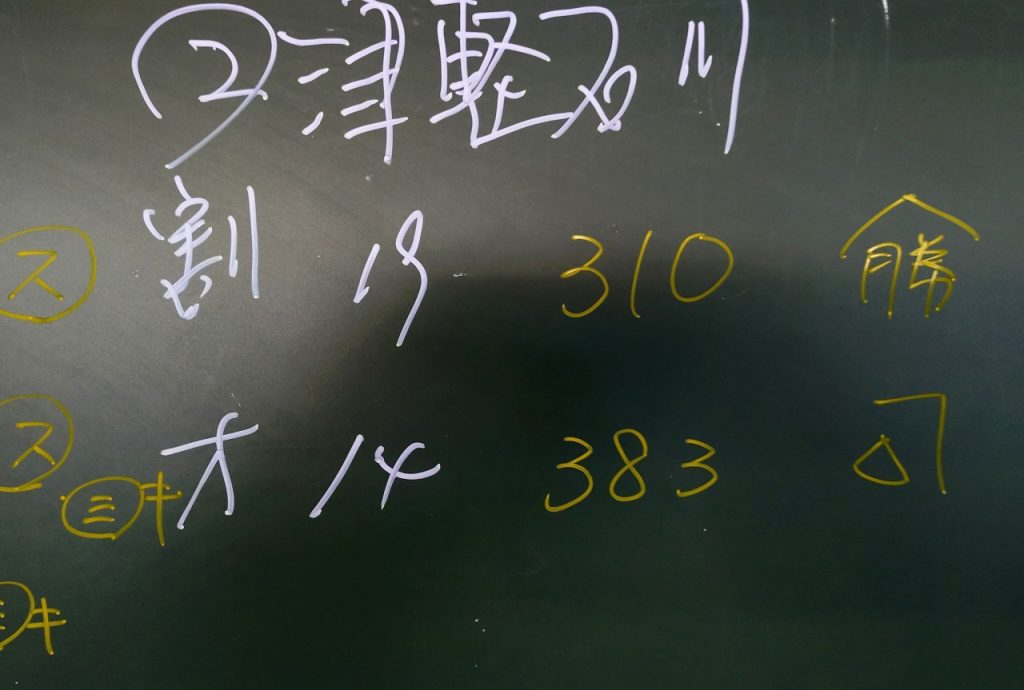 ②津軽石川
ス 割 19 310 勝
ス ㊂キ 才 14 383
キ